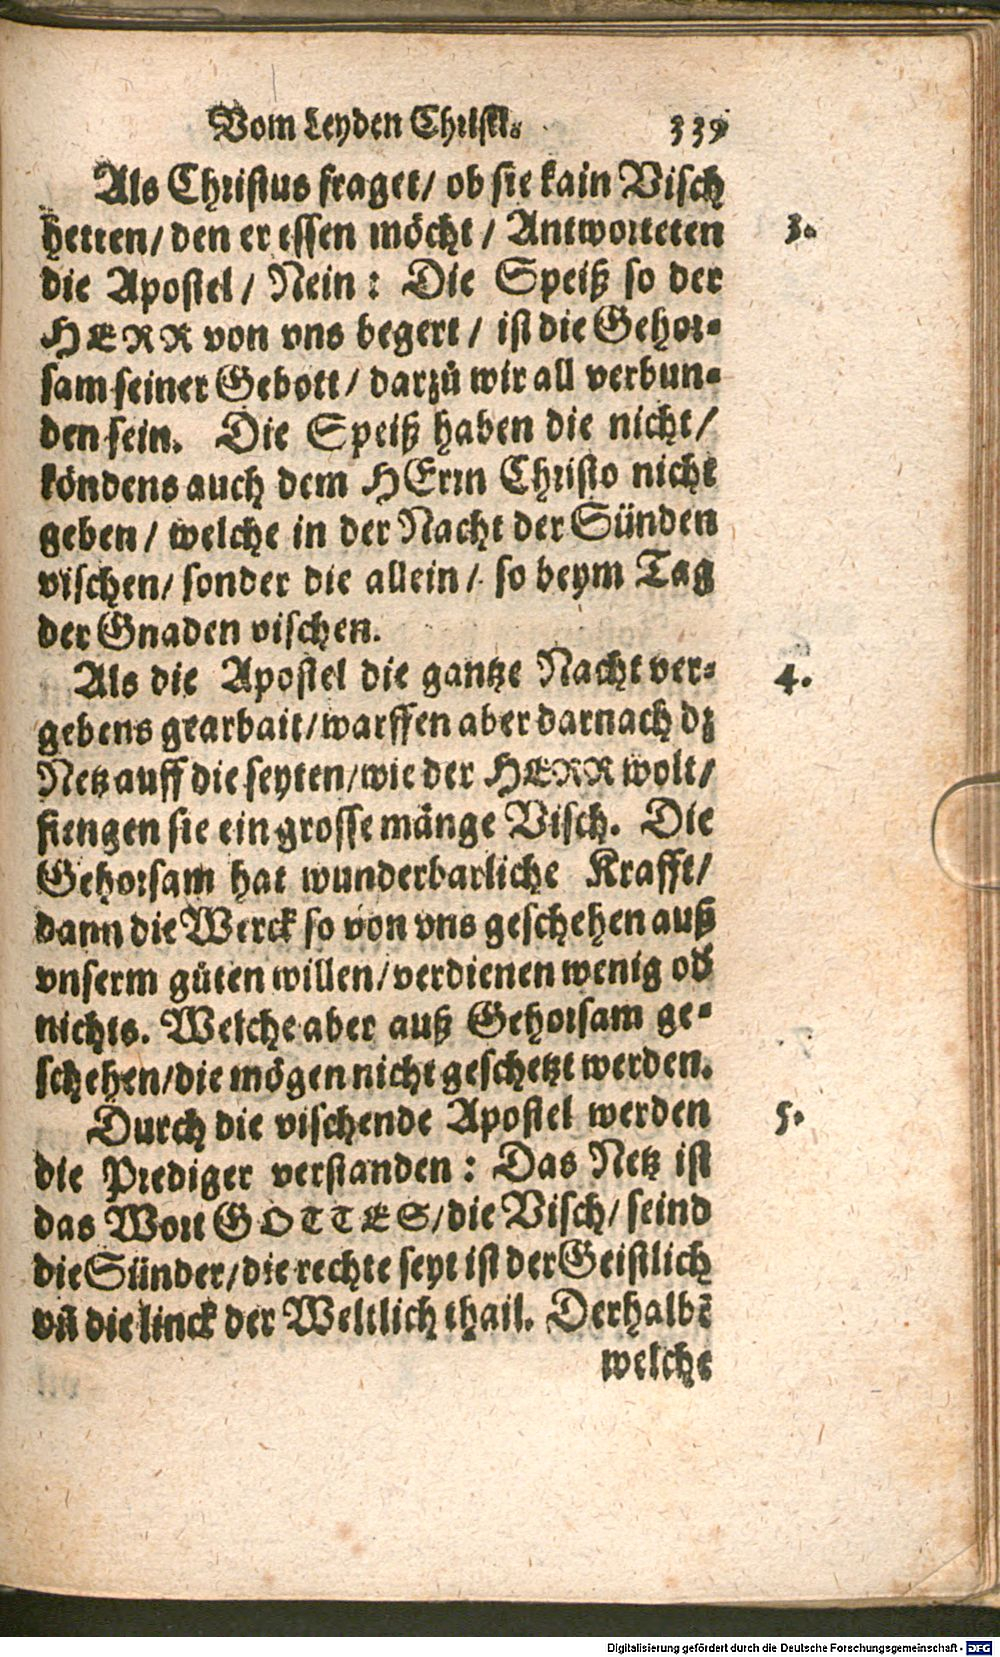 Vom Leyden Christi. 339
Als Christus fraget/ ob sie kain Visch
hetten/ den er essen möcht/ Antworteten 3.
die Apostel/ Nein: Die Speiß so der
HERR von vns begert/ ist die Gehor-
sam seiner Gebott/ darzů wir all verbun-
den sein. Die Speiß haben die nicht/
köndens auch dem HErrn Christo nicht
geben/ welche in der Nacht der Sünden
vischen/ sonder die allein/ so beym Tag
der Gnaden vischen.
Als die Apostel die gantze Nacht ver- 4.
gebens gearbait/ warffen aber darnach dz
Netz auff die seyten/ wie der HERR wolt/
fiengen sie ein grosse mänge Visch. Die
Gehorsam hat wunderbarliche Krafft/
dann die Werck so von vns geschehen auß
vnserm gůten willen/ verdienen wenig od̕
nichts. Welche aber auß Gehorsam ge-
schehen/ die mögen nicht geschetzt werden.
Durch die vischende Apostel werden 5.
die Prediger verstanden: Das Netz ist
das Wort GOTTES/ die Visch/ seind
die Sünder/ die rechte seyt ist der Geistlich
vñ die linck der Weltlich thail. Derhalbē
welche
Digitalisierung gefördert durch die Deutsche Forschungsgemeinschaft - DFG